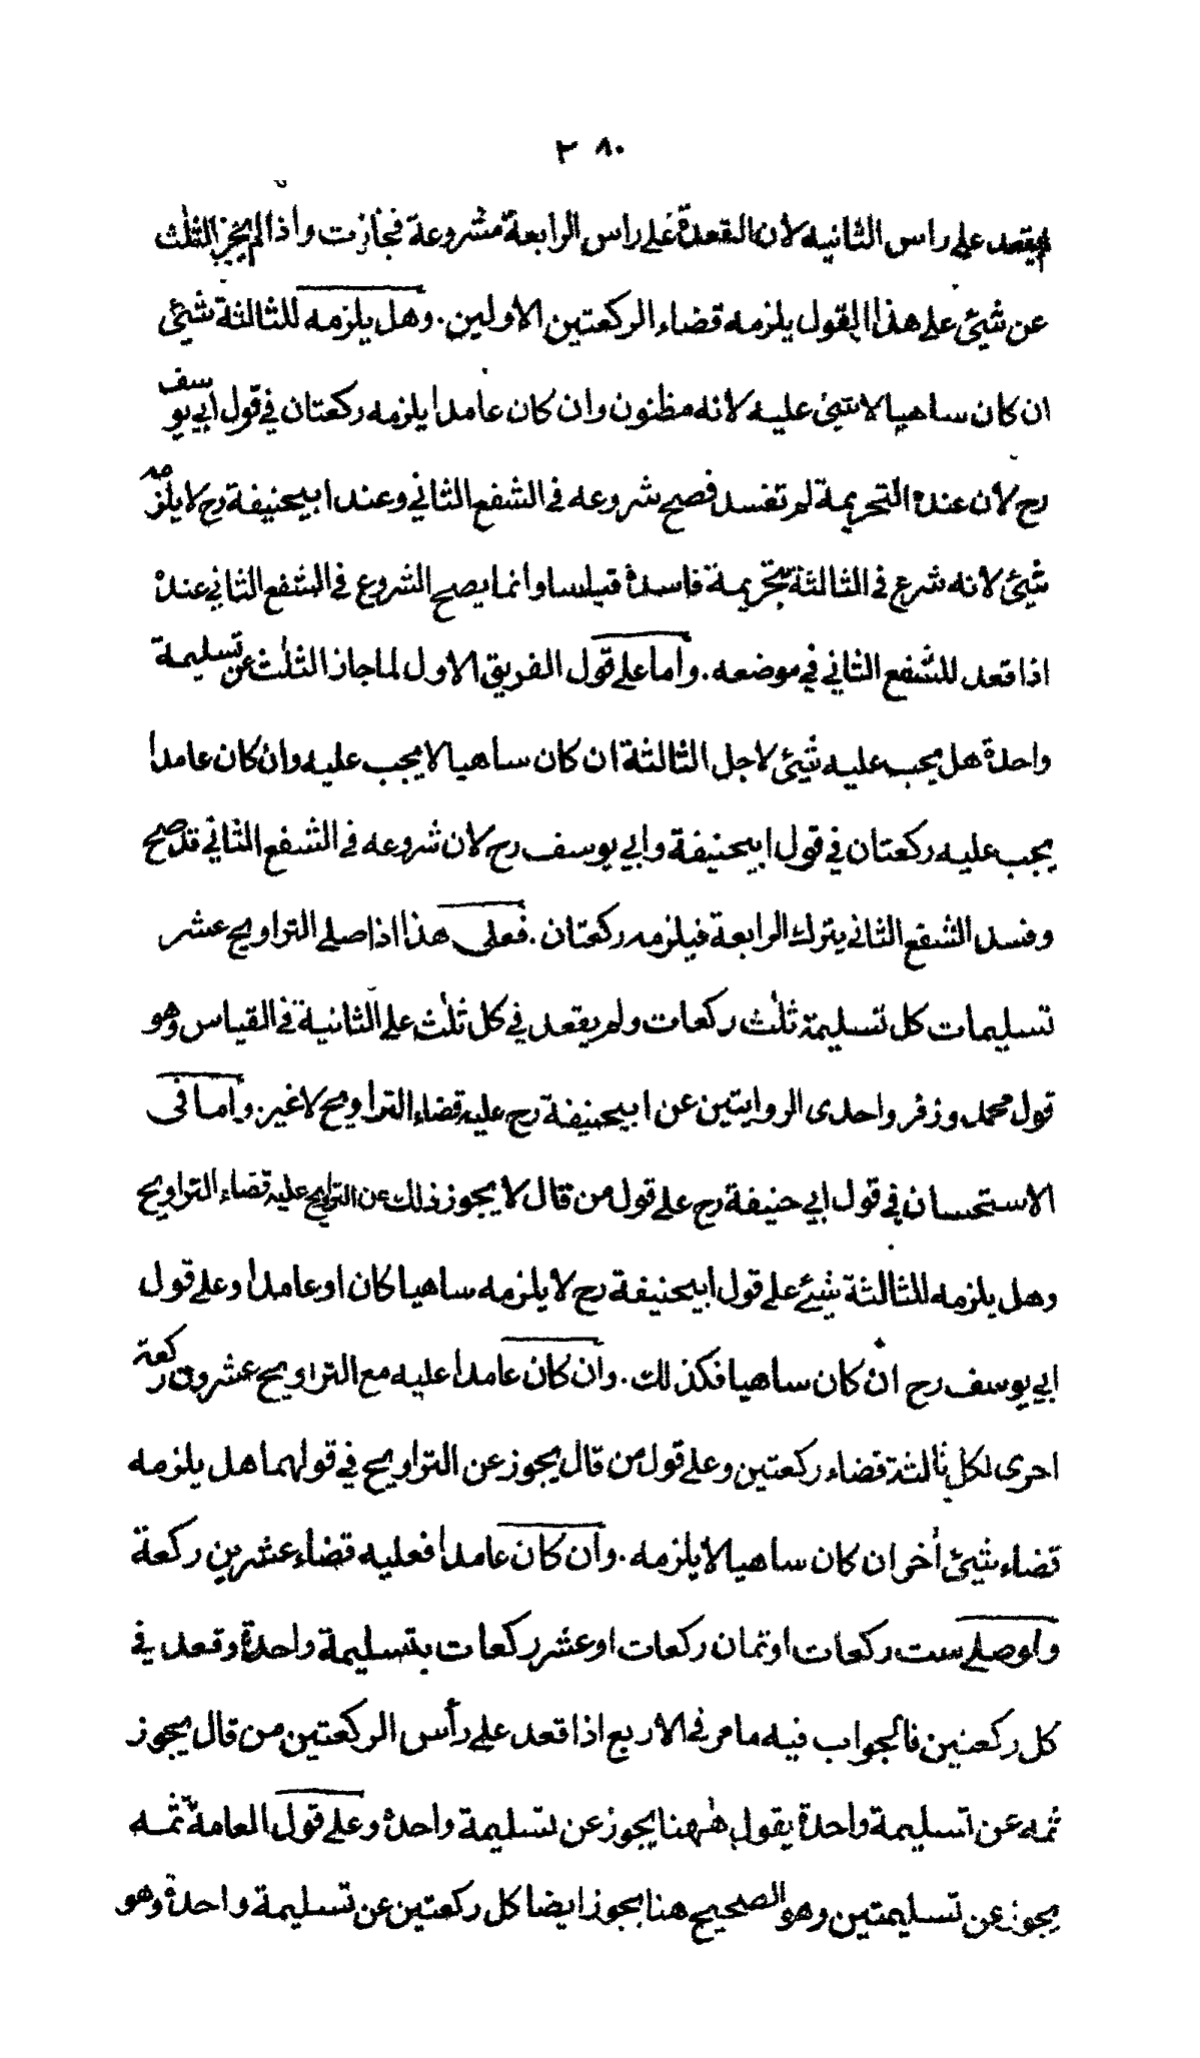 ٢٨٠
يقعد على راس الثانيه لان القعدة على راس الرابعة مشروعة فجازت واذا لم يجز الثلث
عن شيئ على هذا القول يلزمه قضاء الركعتين الاولين. وهل يلزمه للثالثة شيئ
ان كان ساهيا لا شيئ عليه لانه مظنون وان كان عامدا يلزمه ركعتان في قول ابي يوسف
رح لان عنده التحريمة لم تفسد فصح شروعه في الشفع الثاني وعند ابيحنيفة رح لا يلزمه
شيئ لانه شرع في الثالثة بتحريمة فاسدة قياسا وانما يصح الشروع في الشفع الثاني عنده
اذا قعد للشفع الثاني في موضعه. واما على قول الفريق الاول لما جاز الثلث عن تسليمة
واحدة هل يجب عليه شيئ لاجل الثالثة ان كان ساهيا لا يجب عليه وان كان عامدا
يجب عليه ركعتان في قول ابيحنيفة وابي يوسف رح لان شروعه في الشفع الثاني قد صح
وفسد الشفع الثاني بترك الرابعة فيلزمه ركعتان. فعلى هذا اذا صلى التراويح عشر
تسليمات كل تسليمة ثلث ركعات ولم يقعد في كل ثلث على الثانية في القياس وهو
قول محمد وزفر واحدى الروايتين عن ابيحنيفة رح عليه قضاء التراويح لا غير. واما في
الاستحسان في قول ابي حنيفة رح على قول من قال لا يجوز ذلك عن التراويح عليه قضاء التراويح
وهل يلزمه للثالثة شيئ على قول ابيحنيفة رح لا يلزمه ساهيا كان او عامدا وعلى قول
ابي يوسف رح ان كان ساهيا فكذلك. وان كان عامدا عليه مع التراويح عشرون ركعة
اخرى لكل ثالثة قضاء ركعتين وعلى قول من قال يجوز عن التراويح في قولهما هل يلزمه
قضاء شيئ اخر ان كان ساهيا لا يلزمه. وان كان عامدا فعليه قضاء عشرين ركعة
ولو صلى ست ركعات او ثمان ركعات او عشر ركعات بتسليمة واحدة وقعد في
كل ركعتين فالجواب فيه ما مر في الاربع اذا قعد على رأس الركعتين من قال يجوز
ثمه عن تسليمة واحدة يقول ههنا يجوز عن تسليمة واحدة وعلى قول العامة ثمه
يجوز عن تسليمتين وهو الصحيح هنا يجوز ايضا كل ركعتين عن تسليمة واحدة وهو